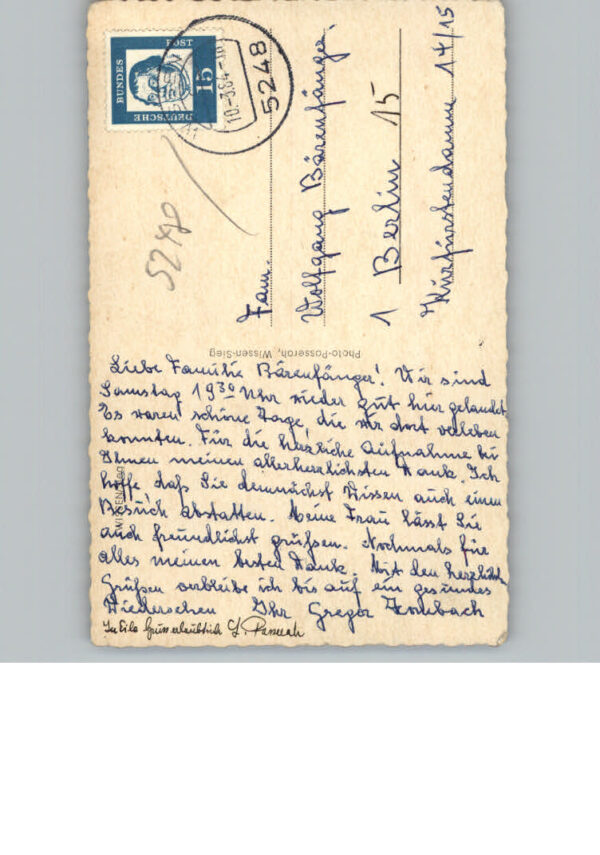 DEUTSCHE
BUNDES
POST
15
10-3.64-18
5248
5248
Fam.
Wolfgang Bärenfänger
1 Berlin 15
Kürfürstendamm 14/15
Photo-Passerah, Wissen-Sieg
WISSEN
Liebe Familie Bärenfänger! Wir sind
Samstag 19³⁰ Uhr wieder gut hier gelandet.
Es waren schöne Tage, die wir dort verleben
konnten. Für die herzliche Aufnahme bei
Ihnen meinen allerherzlichsten Dank. Ich
hoffe daß Sie demnächst Wissen auch einen
Besuch abstatten. Meine Frau lässt Sie
auch freundlichst grüßen. Nochmals für
alles meinen besten Dank. Mit den herzlichsten
Grüßen verbleibe ich bis auf ein gesundes
Wiedersehen Ihr Gregor
In Eile